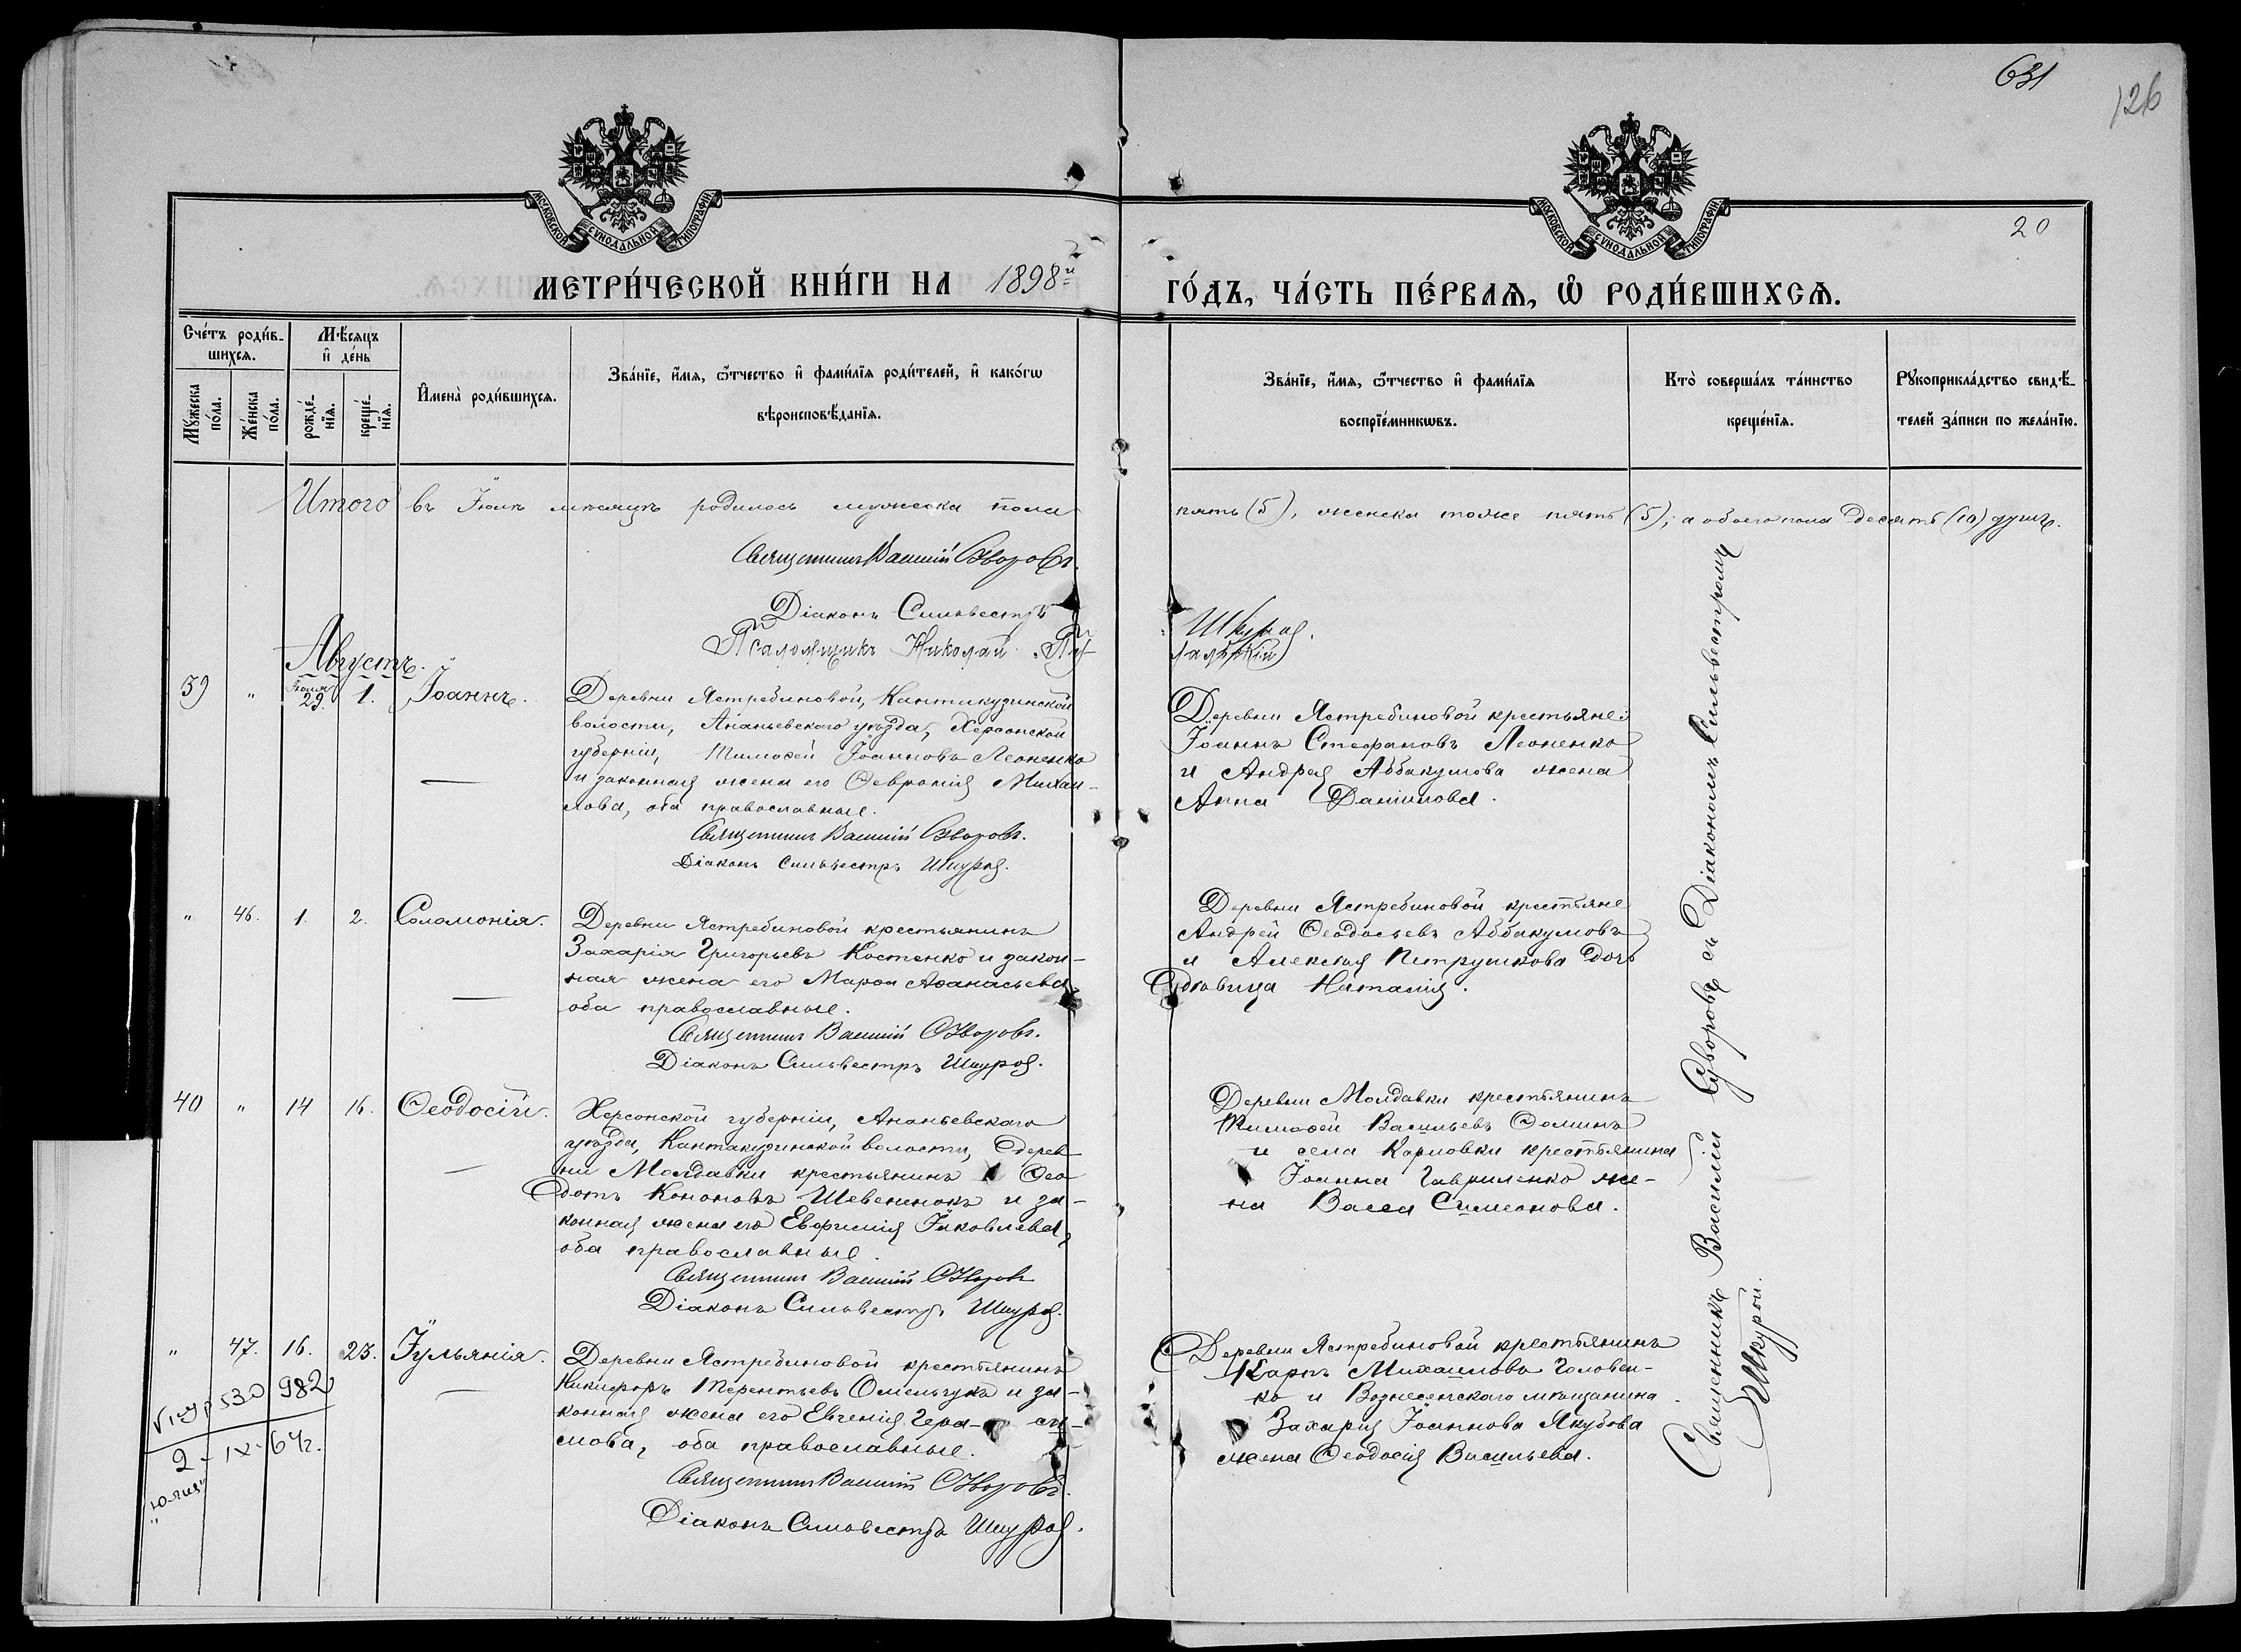 631
126
МОСКОВСКОЙ СѴНОДАЛЬНОЙ ТИПОГРАФІИ
МОСКОВСКОЙ СѴНОДАЛЬНОЙ ТИПОГРАФІИ
20
МЕТРИ́ЧЕСКОЙ КНИ́ГИ НА 1898й
ГО́ДЪ, ЧА́СТЬ ПЕ́РВАѦ, Ѽ РОДИ́ВШИХСѦ.
Сче́тъ роди́в-
шихсѧ.
Мꙋ́жеска по́ла.
Же́нска по́ла.
Мѣ́сѧцъ
и҆ де́нь
рожде́-
нїѧ.
креще́-
нїѧ.
И҆мена̀ роди́вшихсѧ.
Зва́нїе, и҆́мѧ, ѻ҆́тчество и҆ фами́лїѧ роди́телей, и҆ како́гѡ
вѣроисповѣ́данїѧ.
Зва́нїе, и҆́мѧ, ѻ҆́тчество и҆ фами́лїѧ
воспрїе́мникѡвъ.
Кто̀ соверша́лъ та́инство
креще́нїѧ.
Рꙋкоприкла́дство свидѣ́-
телей за́писи по жела́нїю.
Итого въ Іюлѣ мѣсяцѣ родилось мужеска пола
пять (5), женска тоже пять (5); а обоего пола десять (10) душъ.
Священникъ Василій Суворовъ.
Діаконъ Сильвестръ
Шкурой.
Псаломщикъ Николай
Августъ.
39 " Іюля 29. 1. Іоаннъ.
Деревни Ястребиновой, Кантакузинской
волости, Ананьевскаго уѣзда, Херсонской
губерніи, Тимоѳей Іоанновъ Леоненко
и законная жена его Февронія Михаи-
лова, оба православные.
Священникъ Василій Суворовъ.
Діаконъ Сильвестръ Шкурой.
Деревни Ястребиновой крестьяне:
Іоаннъ Стефановъ Леоненко
и Андрея Аббакумова жена
Анна Даніилова.
" 46. 1. 2. Соломонія.
Деревни Ястребиновой крестьянинъ
Захарія Григорьевъ Костенко и закон-
ная жена его Марѳа Аѳанасьева
оба православные.
Священникъ Василій Суворовъ.
Діаконъ Сильвестръ Шкурой.
Деревни Ястребиновой крестьяне
Андрей Ѳеодосьевъ Аббакумовъ
и Алексѣя Петрушкова дочь
дѣвица Наталія.
40 " 14 16. Ѳеодосій.
Херсонской губерніи, Ананьевскаго
уѣзда, Кантакузинской волости, дерев-
ни Молдавки крестьянинъ Ѳео-
дотъ Кононовъ Шевененокъ и за-
конная жена его Евфимія Іаковлева,
оба православные.
Священникъ Василій Суворовъ
Діаконъ Сильвестръ Шкурой.
Деревни Молдавки крестьянинъ
Тимоѳей Васильевъ Ѳоминъ
и села Карловки крестьянина
Іоанна Гавриленко же-
на Васса Симеонова.
" 47. 16. 23. Іульянія.
Деревни Ястребиновой крестьянинъ
Никифоръ Терентьевъ Омельчукъ и за-
конная жена его Евгенія Гера-си-
мова, оба православные.
Священникъ Василій Суворовъ.
Діаконъ Сильвестръ Шкурой.
Деревни Ястребиновой крестьянинъ
Карпъ Михаиловъ Головен-
ко и Вознесенскаго мѣщанина
Захарія Іоаннова Якубова
жена Ѳеодосія Васильева.
530 982
2-IX-64г.
"Юлия"
Священникъ Василій Суворовъ съ Діакономъ Сильвестромъ
Шкурой.